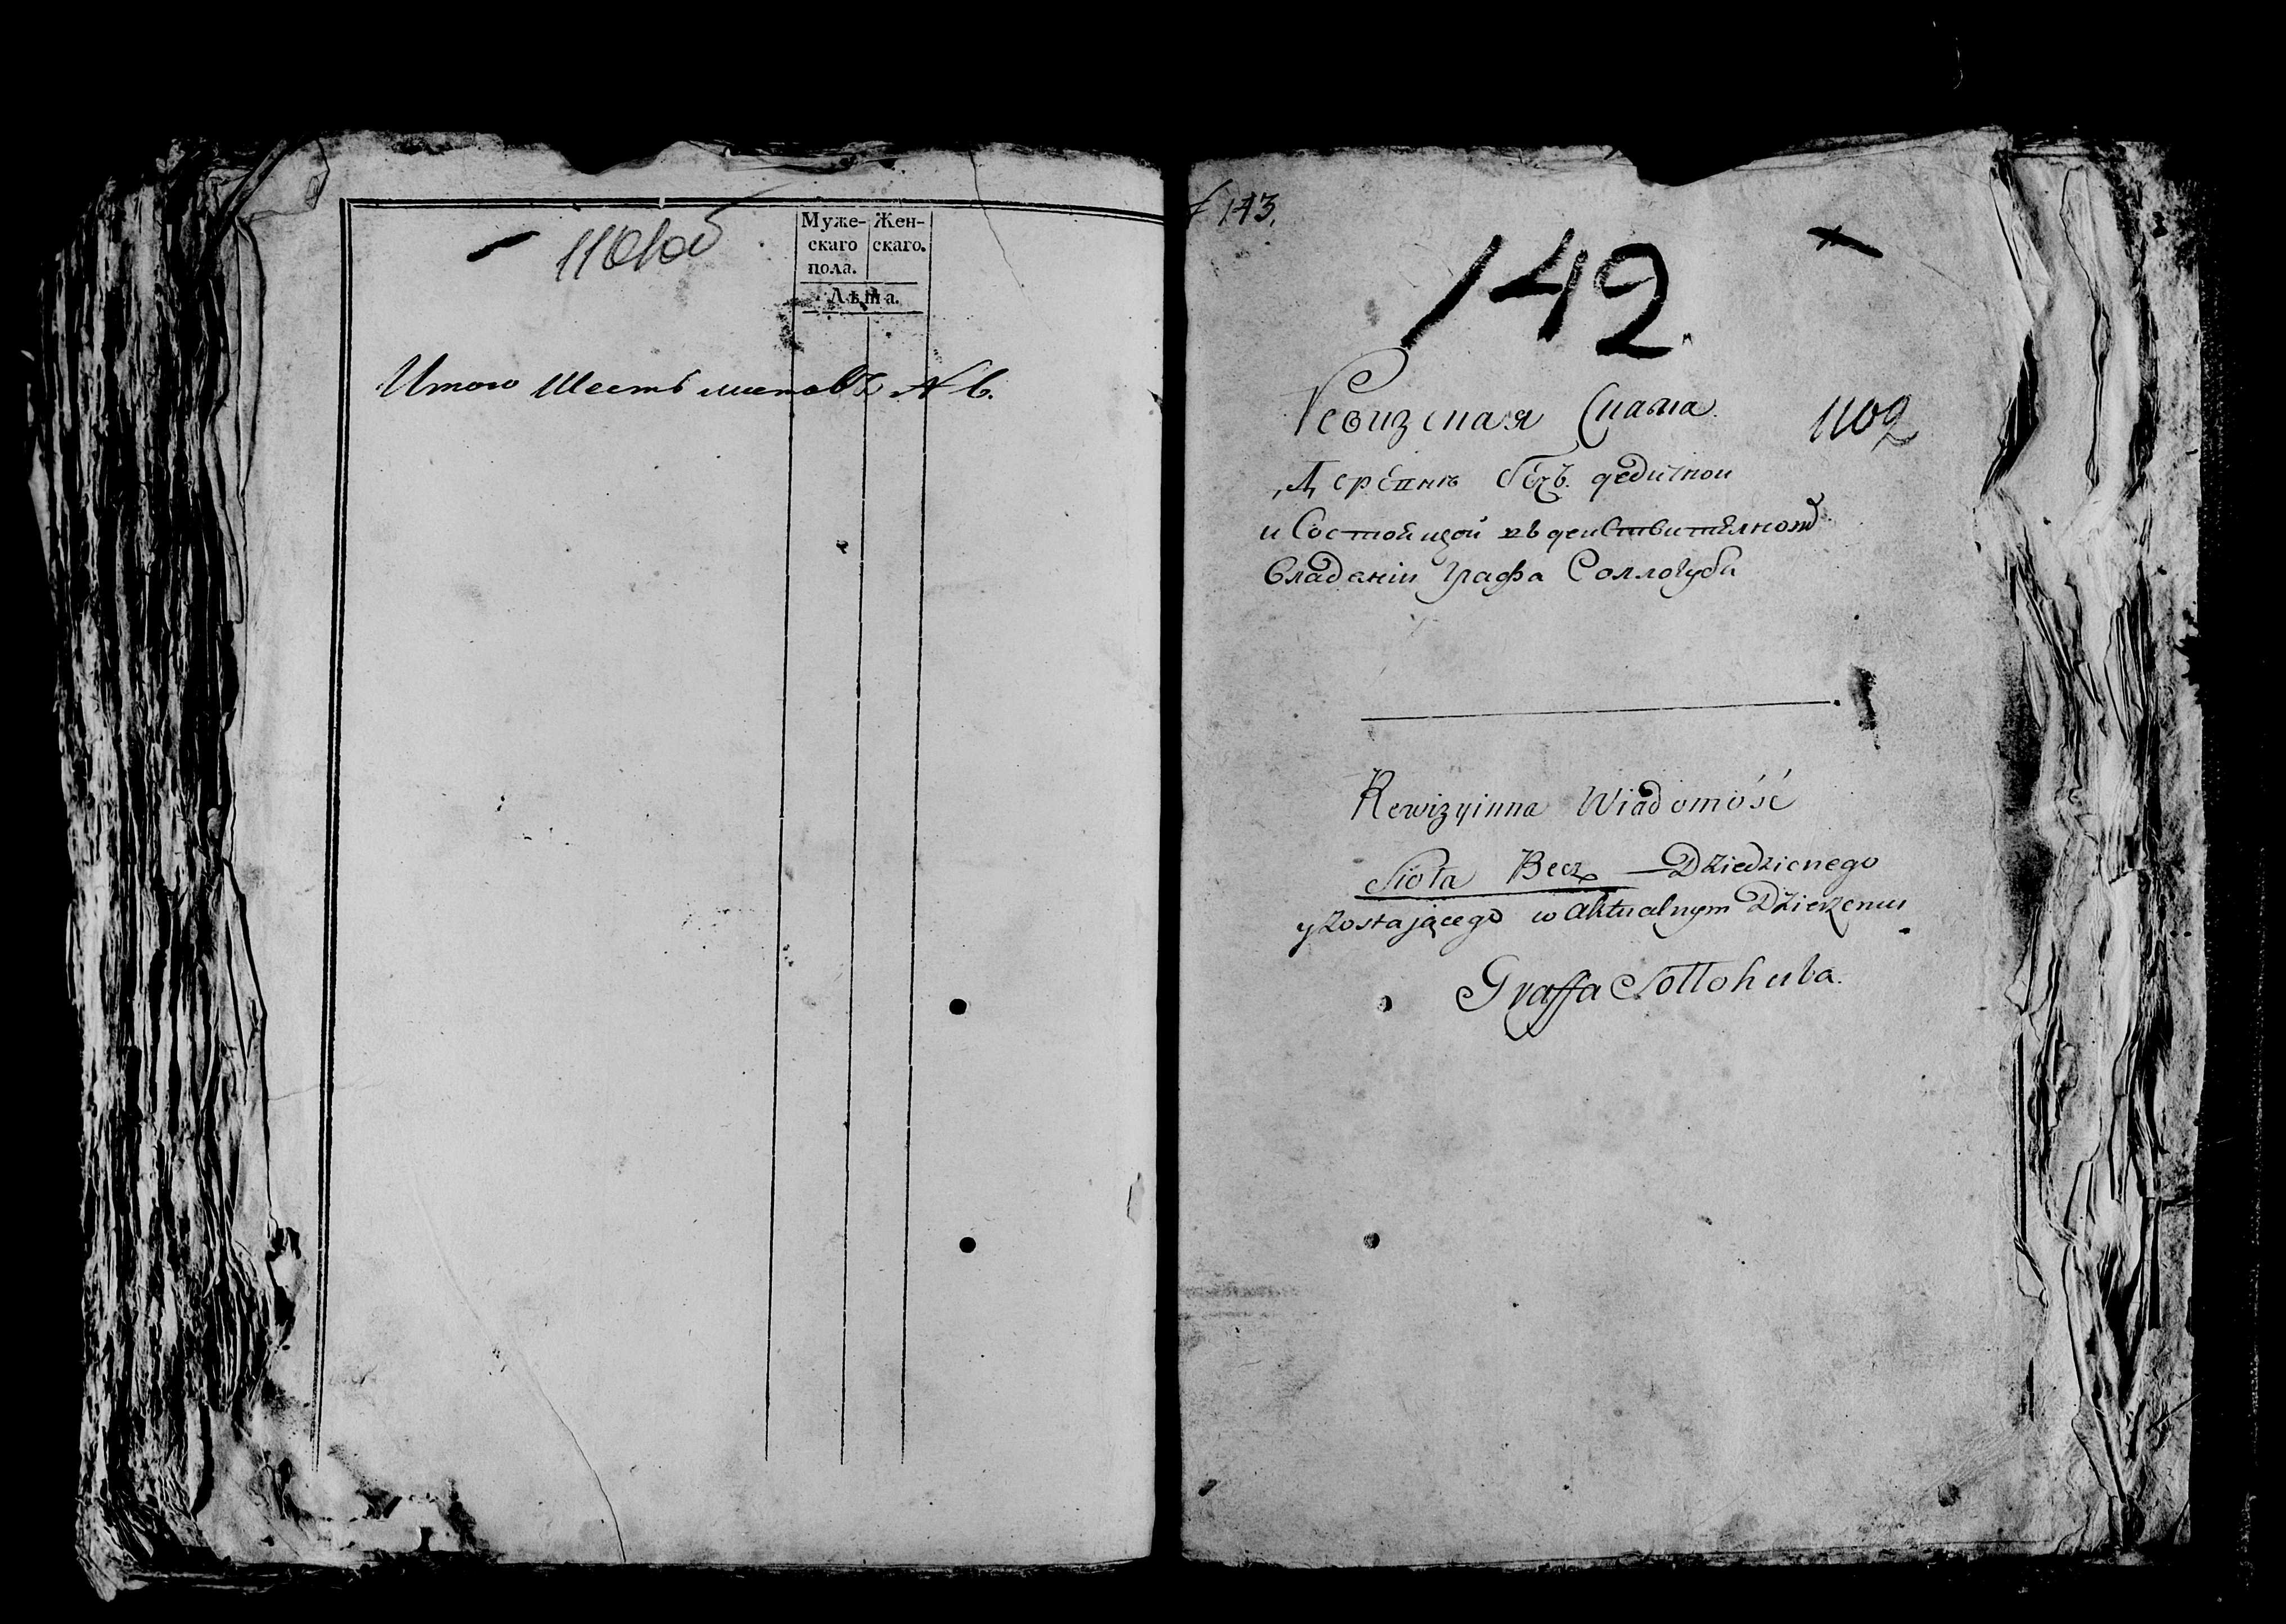 1101об
Муже-
скаго
пола.
Жен-
скаго.
Лѣта.
Итого Шесть листовъ № 6.
143.
142.
Ревизская Сказка
1102
Деревнѣ Бечъ. дедичной
и Состоящой въ действителномъ
Владеніи Графа Соллогуба
Rewizyinna Wiadomość
Sioła Becz Dziedzicnego
y Zostającego w Aktualnym Dzierzeniu
Graffa Sołłohuba.